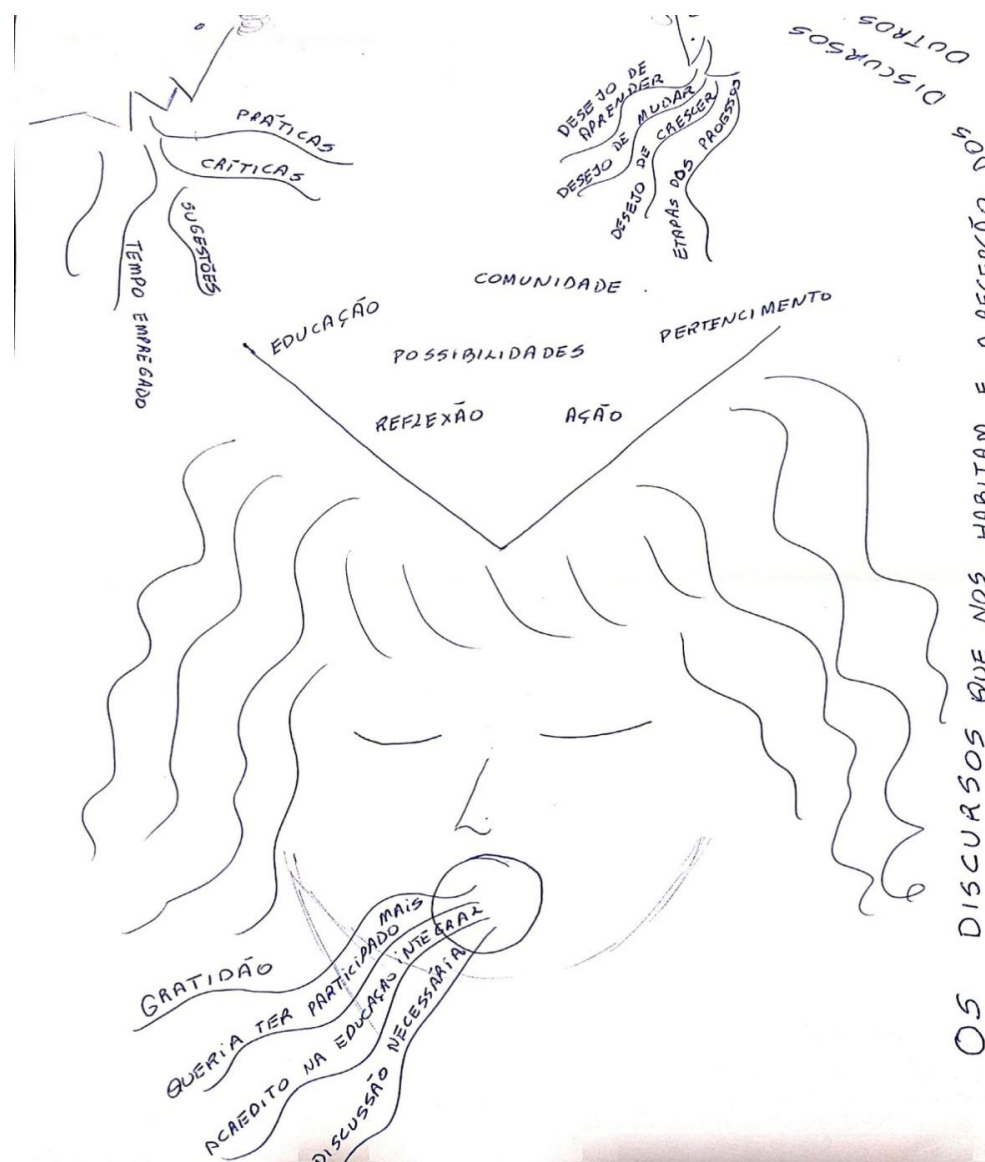 PRÁTICAS
CRÍTICAS
SUGESTÕES
TEMPO EMPREGADO
DESEJO DE
APRENDER
DESEJO DE MUDAR
DESEJO DE CRESCER
ETAPAS DOS PROESSOS
COMUNIDADE
EDUCAÇÃO
POSSIBILIDADES
PERTENCIMENTO
REFLEXÃO AÇÃO
MAIS
GRATIDÃO
QUERIA TER PARTICIPADO
ACREDITO NA EDUCAÇÃO INTEGRAL
DISCUSSÃO NECESSÁRIA
OS DISCURSOS QUE NOS HABITAM E A DECEPÇÃO DOS
DISCURSOS
OUTROS